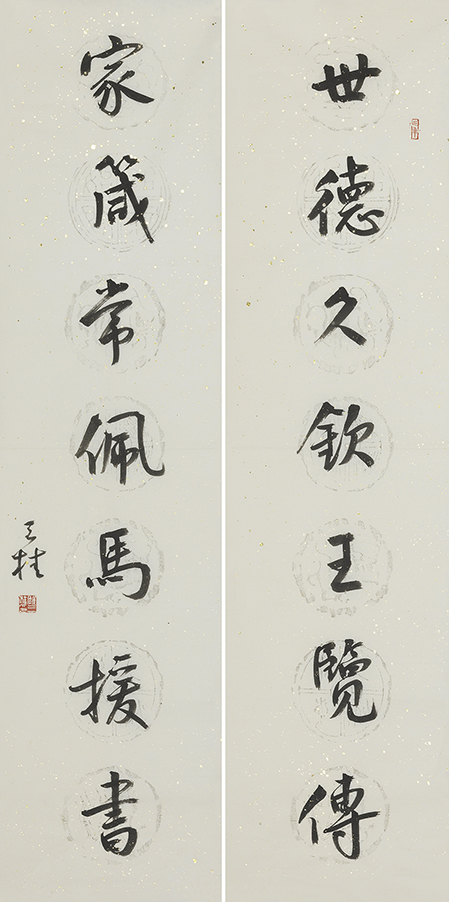 世德久欽王覽傳
家箴常佩馬援書